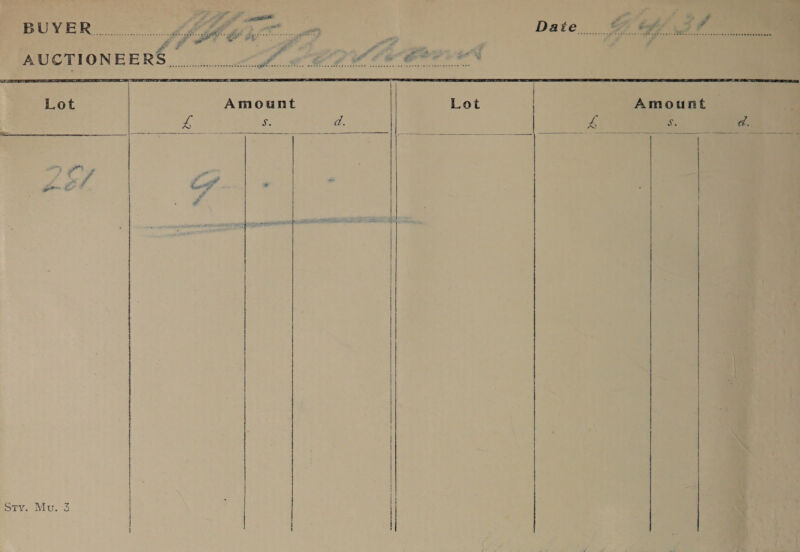 BUYER
Date 9/4/31
AUCTIONEERS Bonhams
Lot Amount Lot Amount
£ s. d. £ s. d.
281 9 - -
Sty. Mu. 3